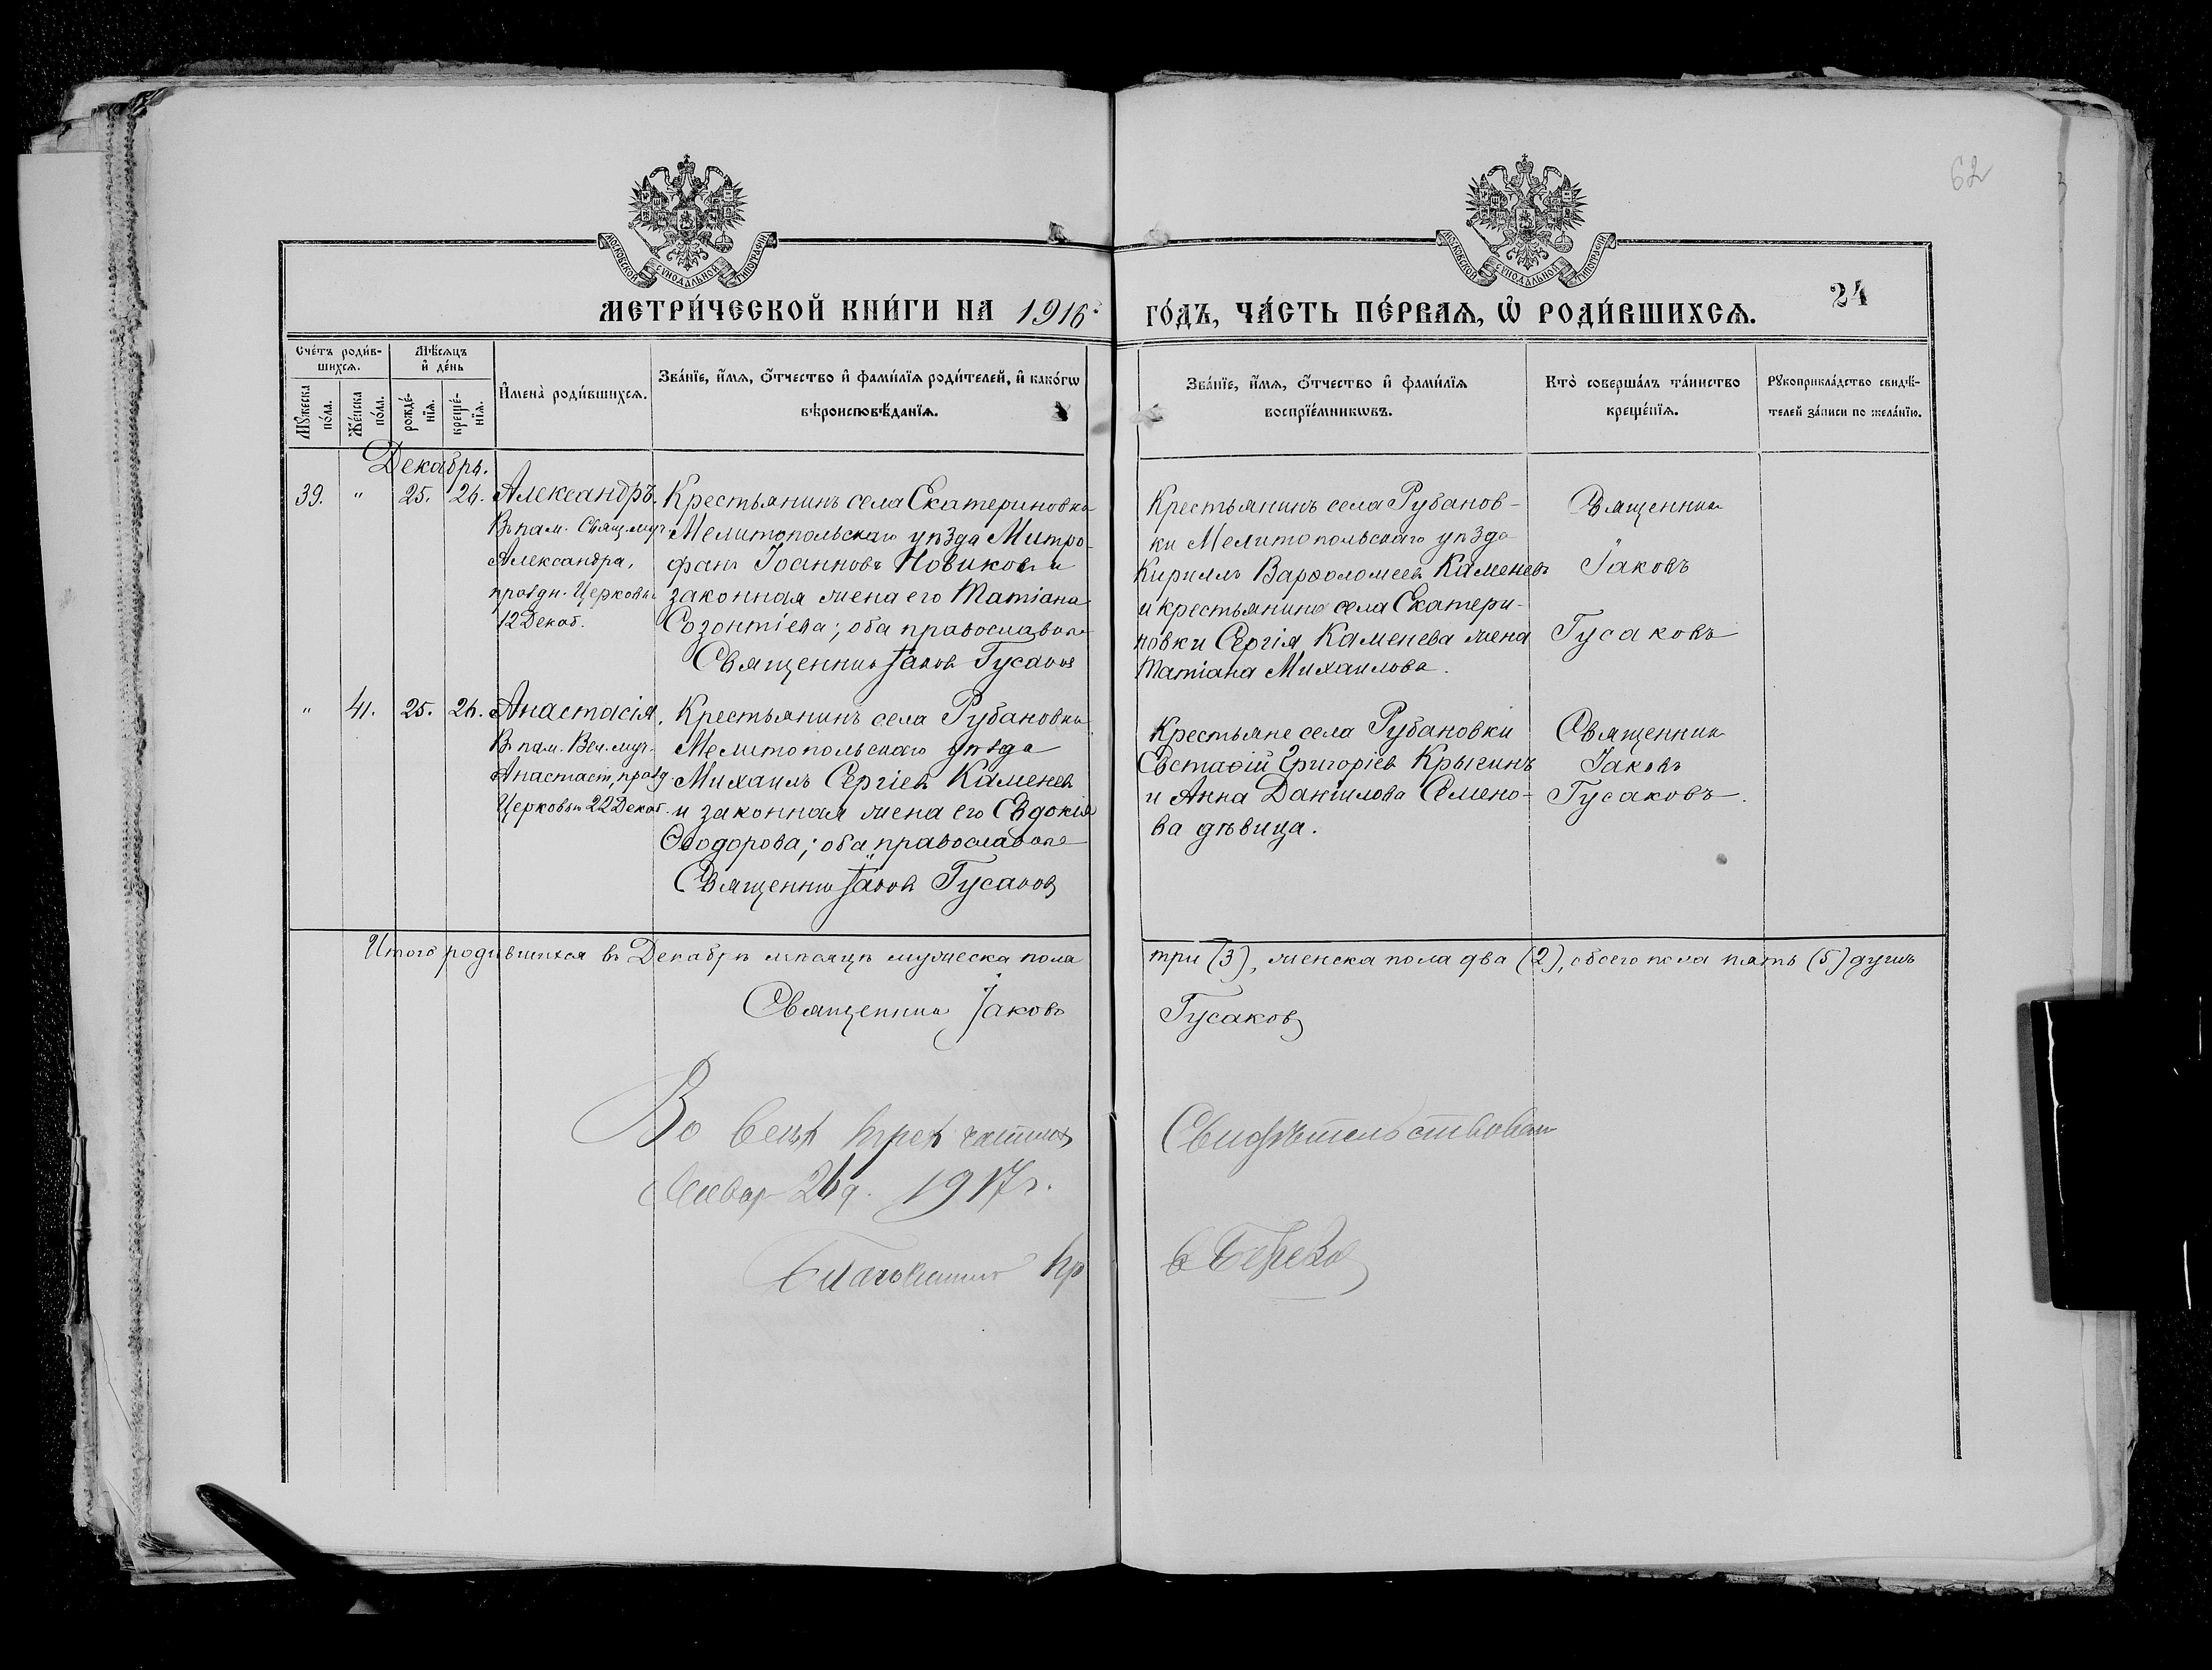 62
МОСКОВСКОЙ СѴНОДАЛЬНОЙ ТИПОГРАФІИ
МОСКОВСКОЙ СѴНОДАЛЬНОЙ ТИПОГРАФІИ
МЕТРИ́ЧЕСКОЙ КНИ́ГИ НА 1916 ГО́ДЪ, ЧА́СТЬ ПЕ́РВАѦ, Ѡ҆ РОДИ́ВШИХСѦ.
24
Сче́тъ роди́вшихсѧ.
Мꙋ́жеска по́ла.
Же́нска по́ла.
Мѣ́сѧцъ и҆ де́нь
рожде́нїѧ.
креще́нїѧ.
И҆мена̀ роди́вшихсѧ.
Зва́нїе, и҆́мѧ, ѻ҆́тчество и҆ фами́лїѧ роди́телей, и҆ како́гѡ вѣроисповѣ́данїѧ.
Зва́нїе, и҆́мѧ, ѻ҆́тчество и҆ фами́лїѧ воспрїе́мникѡвъ.
Кто̀ соверша́лъ та́инство креще́нїѧ.
Рꙋкоприкла́дство свидѣ́телей за́писи по жела́нїю.
Декабрь.
39. " 25. 26. Александръ.
Въ пам. Свящ.муч.
Александра,
праздн. Церковью
12 Декаб.
Крестьянинъ села Екатериновки
Мелитопольскаго уѣзда Митро-
фанъ Іоанновъ Новиковъ и
законная жена его Татіана
Созонтіева; оба православные
Священникъ Іаковъ Гусаковъ
Крестьянинъ села Рубанов-
ки Мелитопольскаго уѣзда
Кириллъ Варѳоломеевъ Каменевъ
и крестьянина села Екатери-
новки Сергія Каменева жена
Татіана Михаилова.
Священникъ
Іаковъ
Гусаковъ
" 41. 25. 26. Анастасія.
Въ пам. Вел. муч.
Анастасіи, празд.
Церковью 22 Декаб.
Крестьянинъ села Рубановки
Мелитопольскаго уѣзда
Михаилъ Сергіевъ Каменевъ
и законная жена его Евдокія
Ѳеодорова; оба православные
Священникъ Іаковъ Гусаковъ
Крестьяне села Рубановки
Евстафій Григоріевъ Крыгинъ
и Анна Даніилова Семено-
ва дѣвица.
Священникъ
Іаковъ
Гусаковъ.
Итого родившихся въ Декабрѣ мѣсяцѣ мужеска пола три (3), женска пола два (2), обоего пола пять (5) душъ
Священникъ Іаковъ Гусаковъ
Во всѣхъ трехъ частяхъ Свидѣтельствовалъ
Январ 26 д. 1917 г.
Благочинный